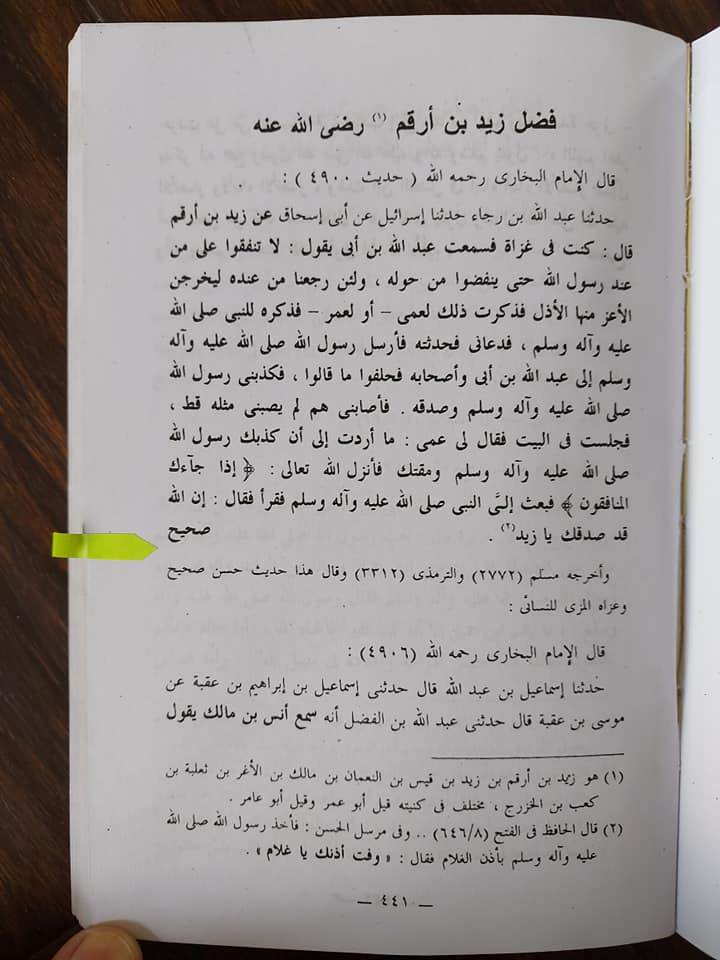 فضل زيد بن أرقم (١) رضى الله عنه
قال الإمام البخارى رحمه الله ( حديث ٤٩٠٠ ) :
حدثنا عبد الله بن رجاء حدثنا إسرائيل عن أبى إسحاق عن زيد بن أرقم
قال : كنت فى غزاة فسمعت عبد الله بن أبى يقول : لا تنفقوا على من
عند رسول الله حتى ينفضوا من حوله ، ولئن رجعنا من عنده ليخرجن
الأعز منها الأذل فذكرت ذلك لعمى – أو لعمر – فذكره للنبى صلى الله
عليه وآله وسلم ، فدعانى فحدثته فأرسل رسول الله صلى الله عليه وآله
وسلم إلى عبد الله بن أبى وأصحابه فحلفوا ما قالوا ، فكذبنى رسول الله
صلى الله عليه وآله وسلم وصدقه . فأصابنى هم لم يصبنى مثله قط ،
فجلست فى البيت فقال لى عمى : ما أردت إلى أن كذبك رسول الله
صلى الله عليه وآله وسلم ومقتك فأنزل الله تعالى : ﴿ إذا جآءك
المنافقون ﴾ فبعث إلىَّ النبى صلى الله عليه وآله وسلم فقرأ فقال : إن الله
قد صدقك يا زيد(٢) . صحيح
وأخرجه مسلم (٢٧٧٢) والترمذى (٣٣١٢) وقال هذا حديث حسن صحيح
وعزاه المزى للنسائى :
قال الإمام البخارى رحمه الله (٤٩٠٦) :
حدثنا إسماعيل بن عبد الله قال حدثنى إسماعيل بن إبراهيم بن عقبة عن
موسى بن عقبة قال حدثنى عبد الله بن الفضل أنه سمع أنس بن مالك يقول
(١) هو زيد بن أرقم بن زيد بن قيس بن النعمان بن مالك بن الأغر بن ثعلبة بن
كعب بن الخزرج ، مختلف فى كنيته قيل أبو عمر وقيل أبو عامر .
(٢) قال الحافظ فى الفتح (٦٤٦/٨) .. وفى مرسل الحسن : فأخذ رسول الله صلى الله
عليه وآله وسلم بأذن الغلام فقال : « وفت أذنك يا غلام » .
– ٤٤١ –